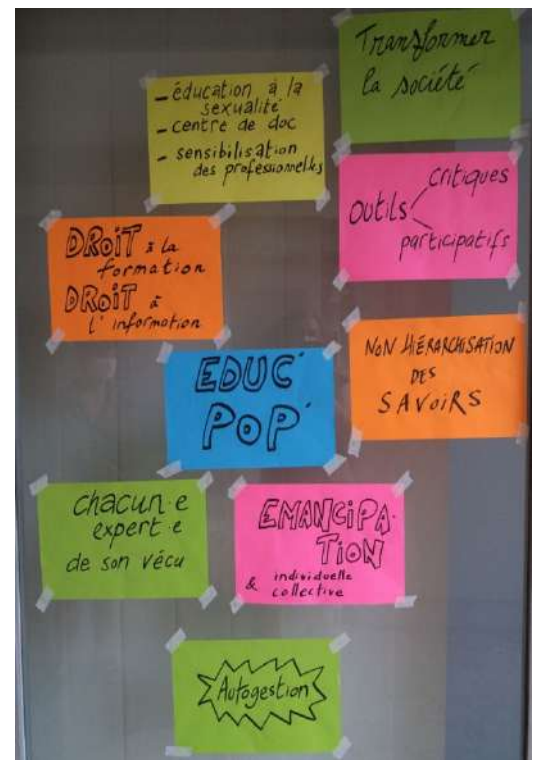 Transformer
la société
- éducation à la
sexualité
- centre de doc
- sensibilisation
des professionnel·les
OUTILS
critiques
participatifs
DROIT à la
formation
DROIT à
l'information
EDUC'
POP'
NON HIÉRARCHISATION
DES
SAVOIRS
chacun·e
expert·e
de son vécu
EMANCIPA-
TION
individuelle
& collective
Autogestion